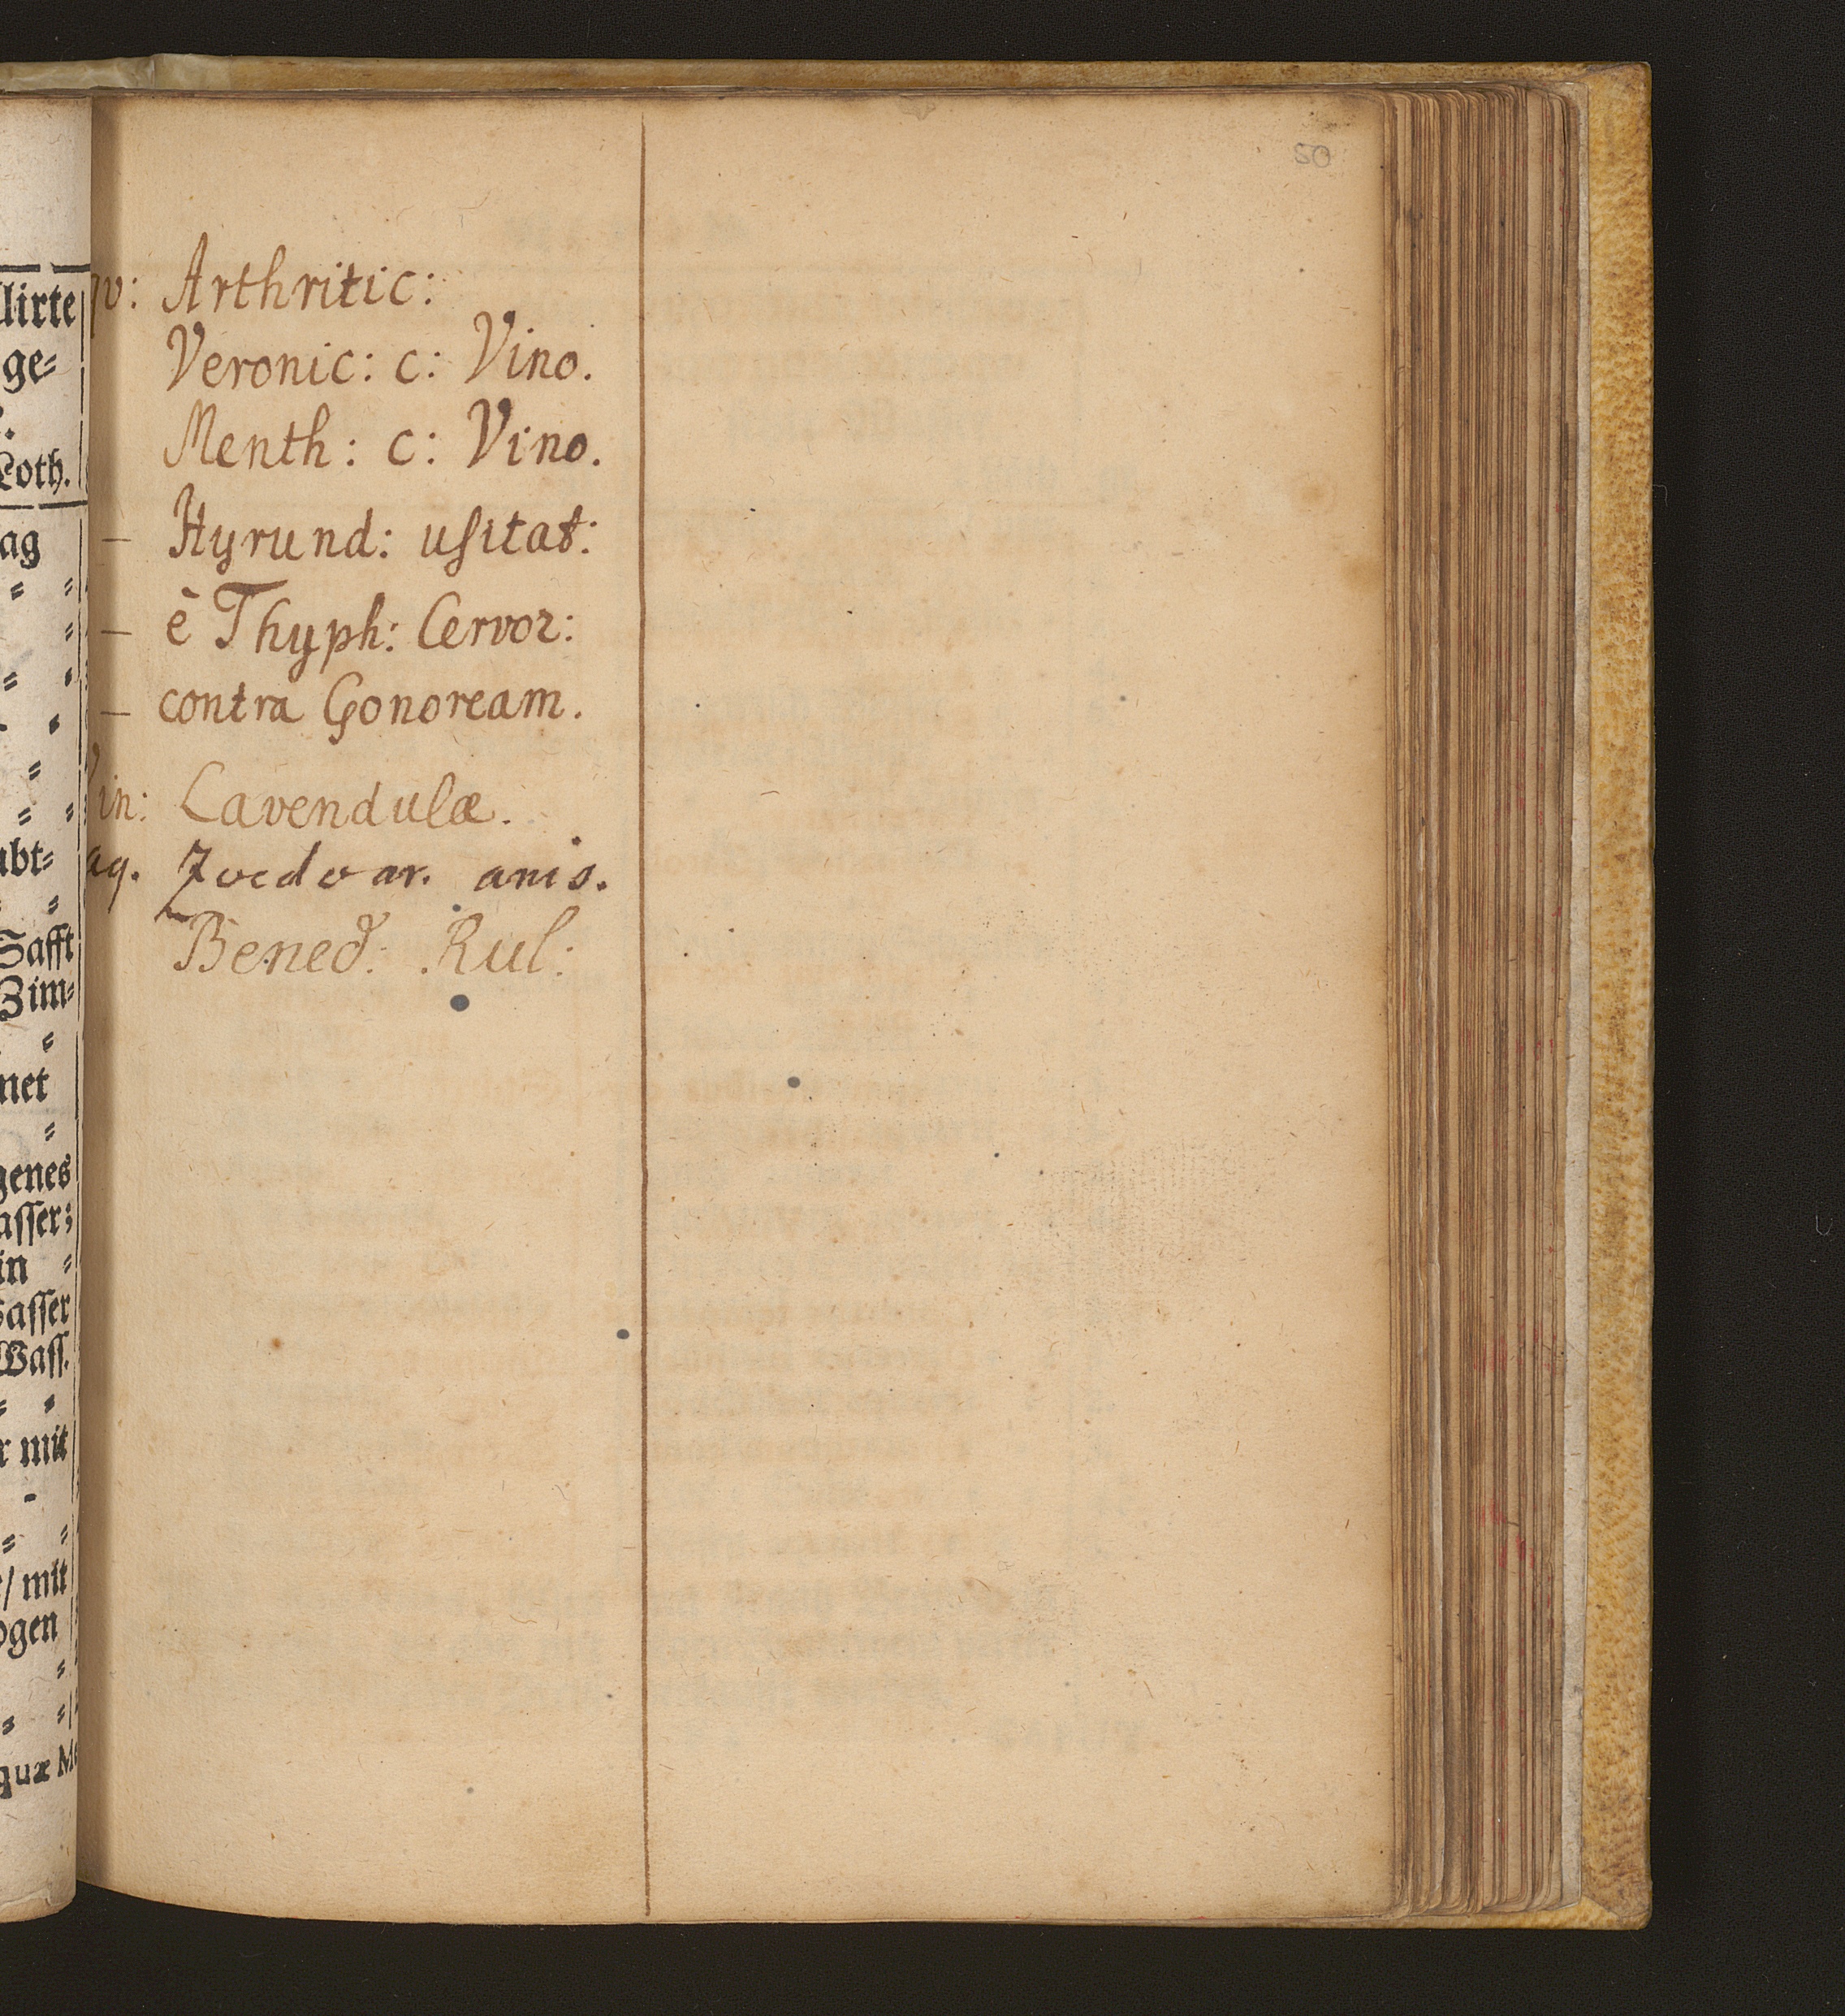 lirte
ge⸗
Loth.
ag
abt⸗
Safft
Zim⸗
net
genes
asser;
in
asser
Wass.
r mit
/ mit
ogen
quæ M
50
qv: Arthritic:
Veronic: c: Vino.
Menth: c: Vino.
– Hyrund: usitat:
– è Thyph: Cervor:
– contra Gonoream.
in: Lavendulæ.
aq. Zoedoar. anis.
Bened: Rul: